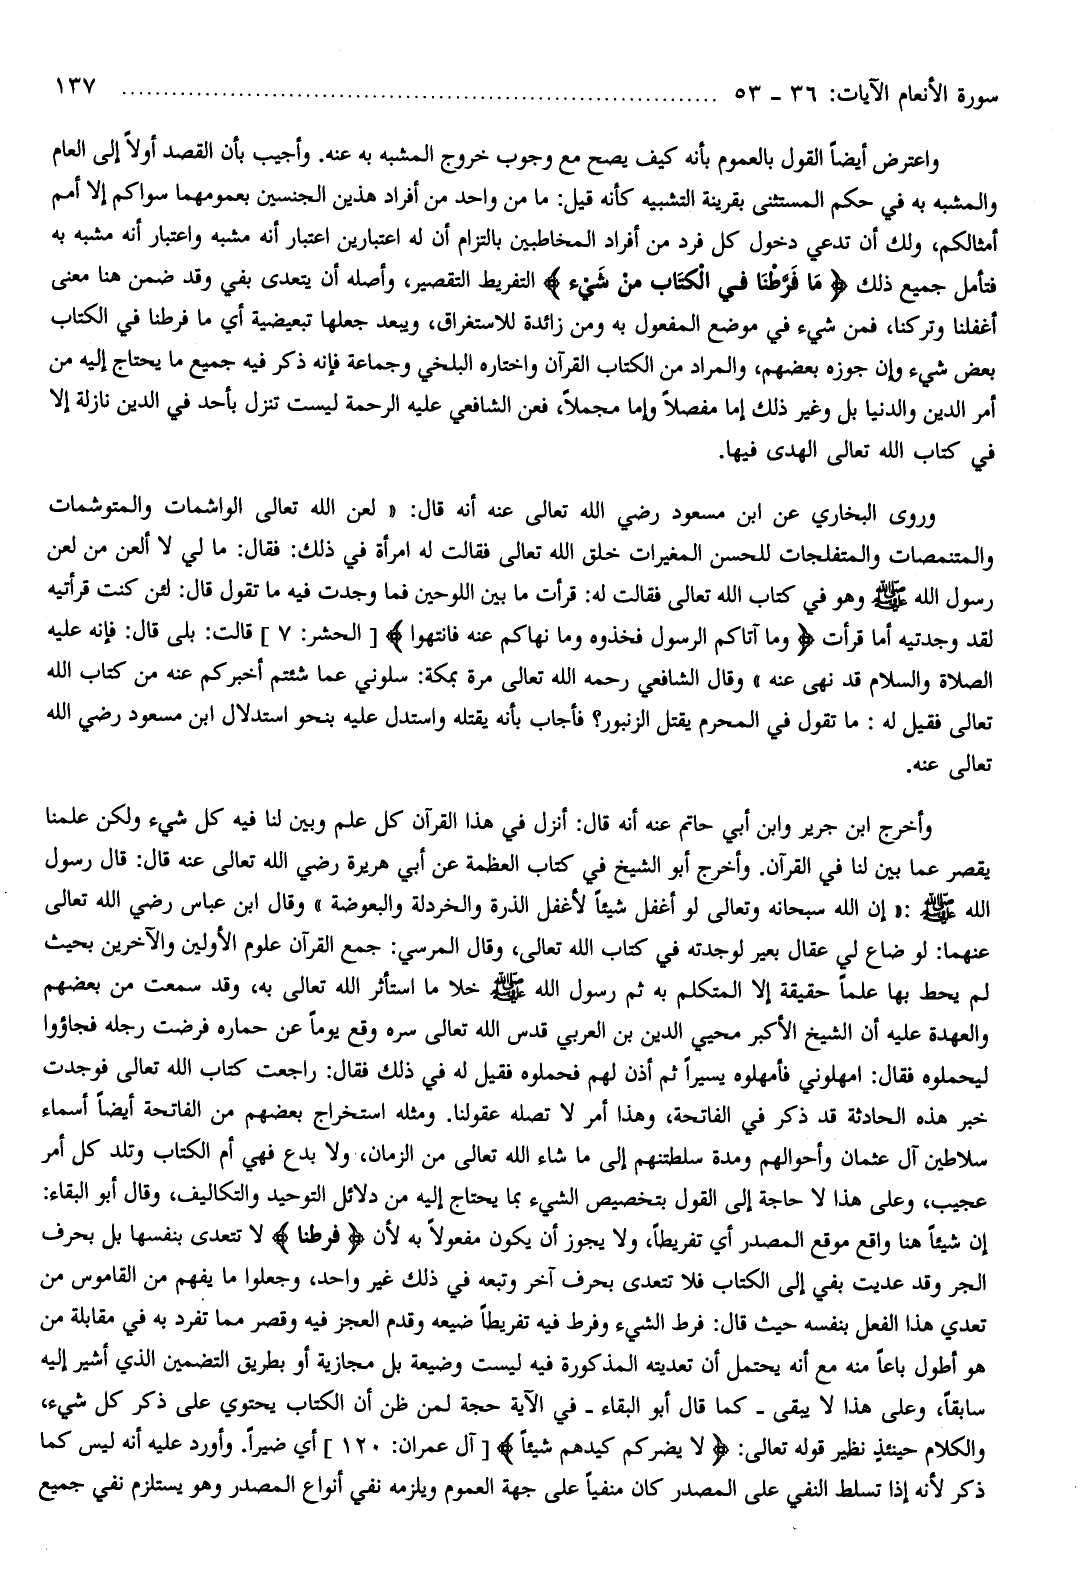 سورة الأنعام الآيات: ٣٦ - ٥٣ ........................................................................ ١٣٧
واعترض أيضاً القول بالعموم بأنه كيف يصح مع وجوب خروج المشبه به عنه. وأجيب بأن القصد أولاً إلى العام
والمشبه به في حكم المستثنى بقرينة التشبيه كأنه قيل: ما من واحد من أفراد هذين الجنسين بعمومهما سواكم إلا أمم
أمثالكم، ولك أن تدعي دخول كل فرد من أفراد المخاطبين بالتزام أن له اعتبارين اعتبار أنه مشبه واعتبار أنه مشبه به
فتأمل جميع ذلك ﴿ مَا فَرَّطْنَا فِي الْكتَاب منْ شَيْء ﴾ التفريط التقصير، وأصله أن يتعدى بفي وقد ضمن هنا معنى
أغفلنا وتركنا، فمن شيء في موضع المفعول به ومن زائدة للاستغراق، ويبعد جعلها تبعيضية أي ما فرطنا في الكتاب
بعض شيء وإن جوزه بعضهم، والمراد من الكتاب القرآن واختاره البلخي وجماعة فإنه ذكر فيه جميع ما يحتاج إليه من
أمر الدين والدنيا بل وغير ذلك إما مفصلاً وإما مجملاً، فعن الشافعي عليه الرحمة ليست تنزل بأحد في الدين نازلة إلا
في كتاب الله تعالى الهدى فيها.
وروى البخاري عن ابن مسعود رضي الله تعالى عنه أنه قال: « لعن الله تعالى الواشمات والمتوشمات
والمتنمصات والمتفلجات للحسن المغيرات خلق الله تعالى فقالت له امرأة في ذلك: فقال: ما لي لا ألعن من لعن
رسول الله ﷺ وهو في كتاب الله تعالى فقالت له: قرأت ما بين اللوحين فما وجدت فيه ما تقول قال: لئن كنت قرأتيه
لقد وجدتيه أما قرأت ﴿ وما آتاكم الرسول فخذوه وما نهاكم عنه فانتهوا ﴾ [ الحشر: ٧ ] قالت: بلى قال: فإنه عليه
الصلاة والسلام قد نهى عنه » وقال الشافعي رحمه الله تعالى مرة بمكة: سلوني عما شئتم أخبركم عنه من كتاب الله
تعالى فقيل له : ما تقول في المحرم يقتل الزنبور؟ فأجاب بأنه يقتله واستدل عليه بنحو استدلال ابن مسعود رضي الله
تعالى عنه.
وأخرج ابن جرير وابن أبي حاتم عنه أنه قال: أنزل في هذا القرآن كل علم وبين لنا فيه كل شيء ولكن علمنا
يقصر عما بين لنا في القرآن. وأخرج أبو الشيخ في كتاب العظمة عن أبي هريرة رضي الله تعالى عنه قال: قال رسول
الله ﷺ :« إن الله سبحانه وتعالى لو أغفل شيئاً لأغفل الذرة والخردلة والبعوضة » وقال ابن عباس رضي الله تعالى
عنهما: لو ضاع لي عقال بعير لوجدته في كتاب الله تعالى، وقال المرسي: جمع القرآن علوم الأولين والآخرين بحيث
لم يحط بها علماً حقيقة إلا المتكلم به ثم رسول الله ﷺ خلا ما استأثر الله تعالى به، وقد سمعت من بعضهم
والعهدة عليه أن الشيخ الأكبر محيي الدين بن العربي قدس الله تعالى سره وقع يوماً عن حماره فرضت رجله فجاؤوا
ليحملوه فقال: امهلوني فأمهلوه يسيراً ثم أذن لهم فحملوه فقيل له في ذلك فقال: راجعت كتاب الله تعالى فوجدت
خبر هذه الحادثة قد ذكر في الفاتحة، وهذا أمر لا تصله عقولنا. ومثله استخراج بعضهم من الفاتحة أيضاً أسماء
سلاطين آل عثمان وأحوالهم ومدة سلطنتهم إلى ما شاء الله تعالى من الزمان، ولا بدع فهي أم الكتاب وتلد كل أمر
عجيب، وعلى هذا لا حاجة إلى القول بتخصيص الشيء بما يحتاج إليه من دلائل التوحيد والتكاليف، وقال أبو البقاء:
إن شيئاً هنا واقع موقع المصدر أي تفريطاً، ولا يجوز أن يكون مفعولاً به لأن ﴿ فرطنا ﴾ لا تتعدى بنفسها بل بحرف
الجر وقد عديت بفي إلى الكتاب فلا تتعدى بحرف آخر وتبعه في ذلك غير واحد، وجعلوا ما يفهم من القاموس من
تعدي هذا الفعل بنفسه حيث قال: فرط الشيء وفرط فيه تفريطاً ضيعه وقدم العجز فيه وقصر مما تفرد به في مقابلة من
هو أطول باعاً منه مع أنه يحتمل أن تعديته المذكورة فيه ليست وضيعة بل مجازية أو بطريق التضمين الذي أشير إليه
سابقاً، وعلى هذا لا يبقى - كما قال أبو البقاء - في الآية حجة لمن ظن أن الكتاب يحتوي على ذكر كل شيء،
والكلام حينئذٍ نظير قوله تعالى: ﴿ لا يضركم كيدهم شيئاً ﴾ [ آل عمران: ١٢٠ ] أي ضيراً. وأورد عليه أنه ليس كما
ذكر لأنه إذا تسلط النفي على المصدر كان منفياً على جهة العموم ويلزمه نفي أنواع المصدر وهو يستلزم نفي جميع